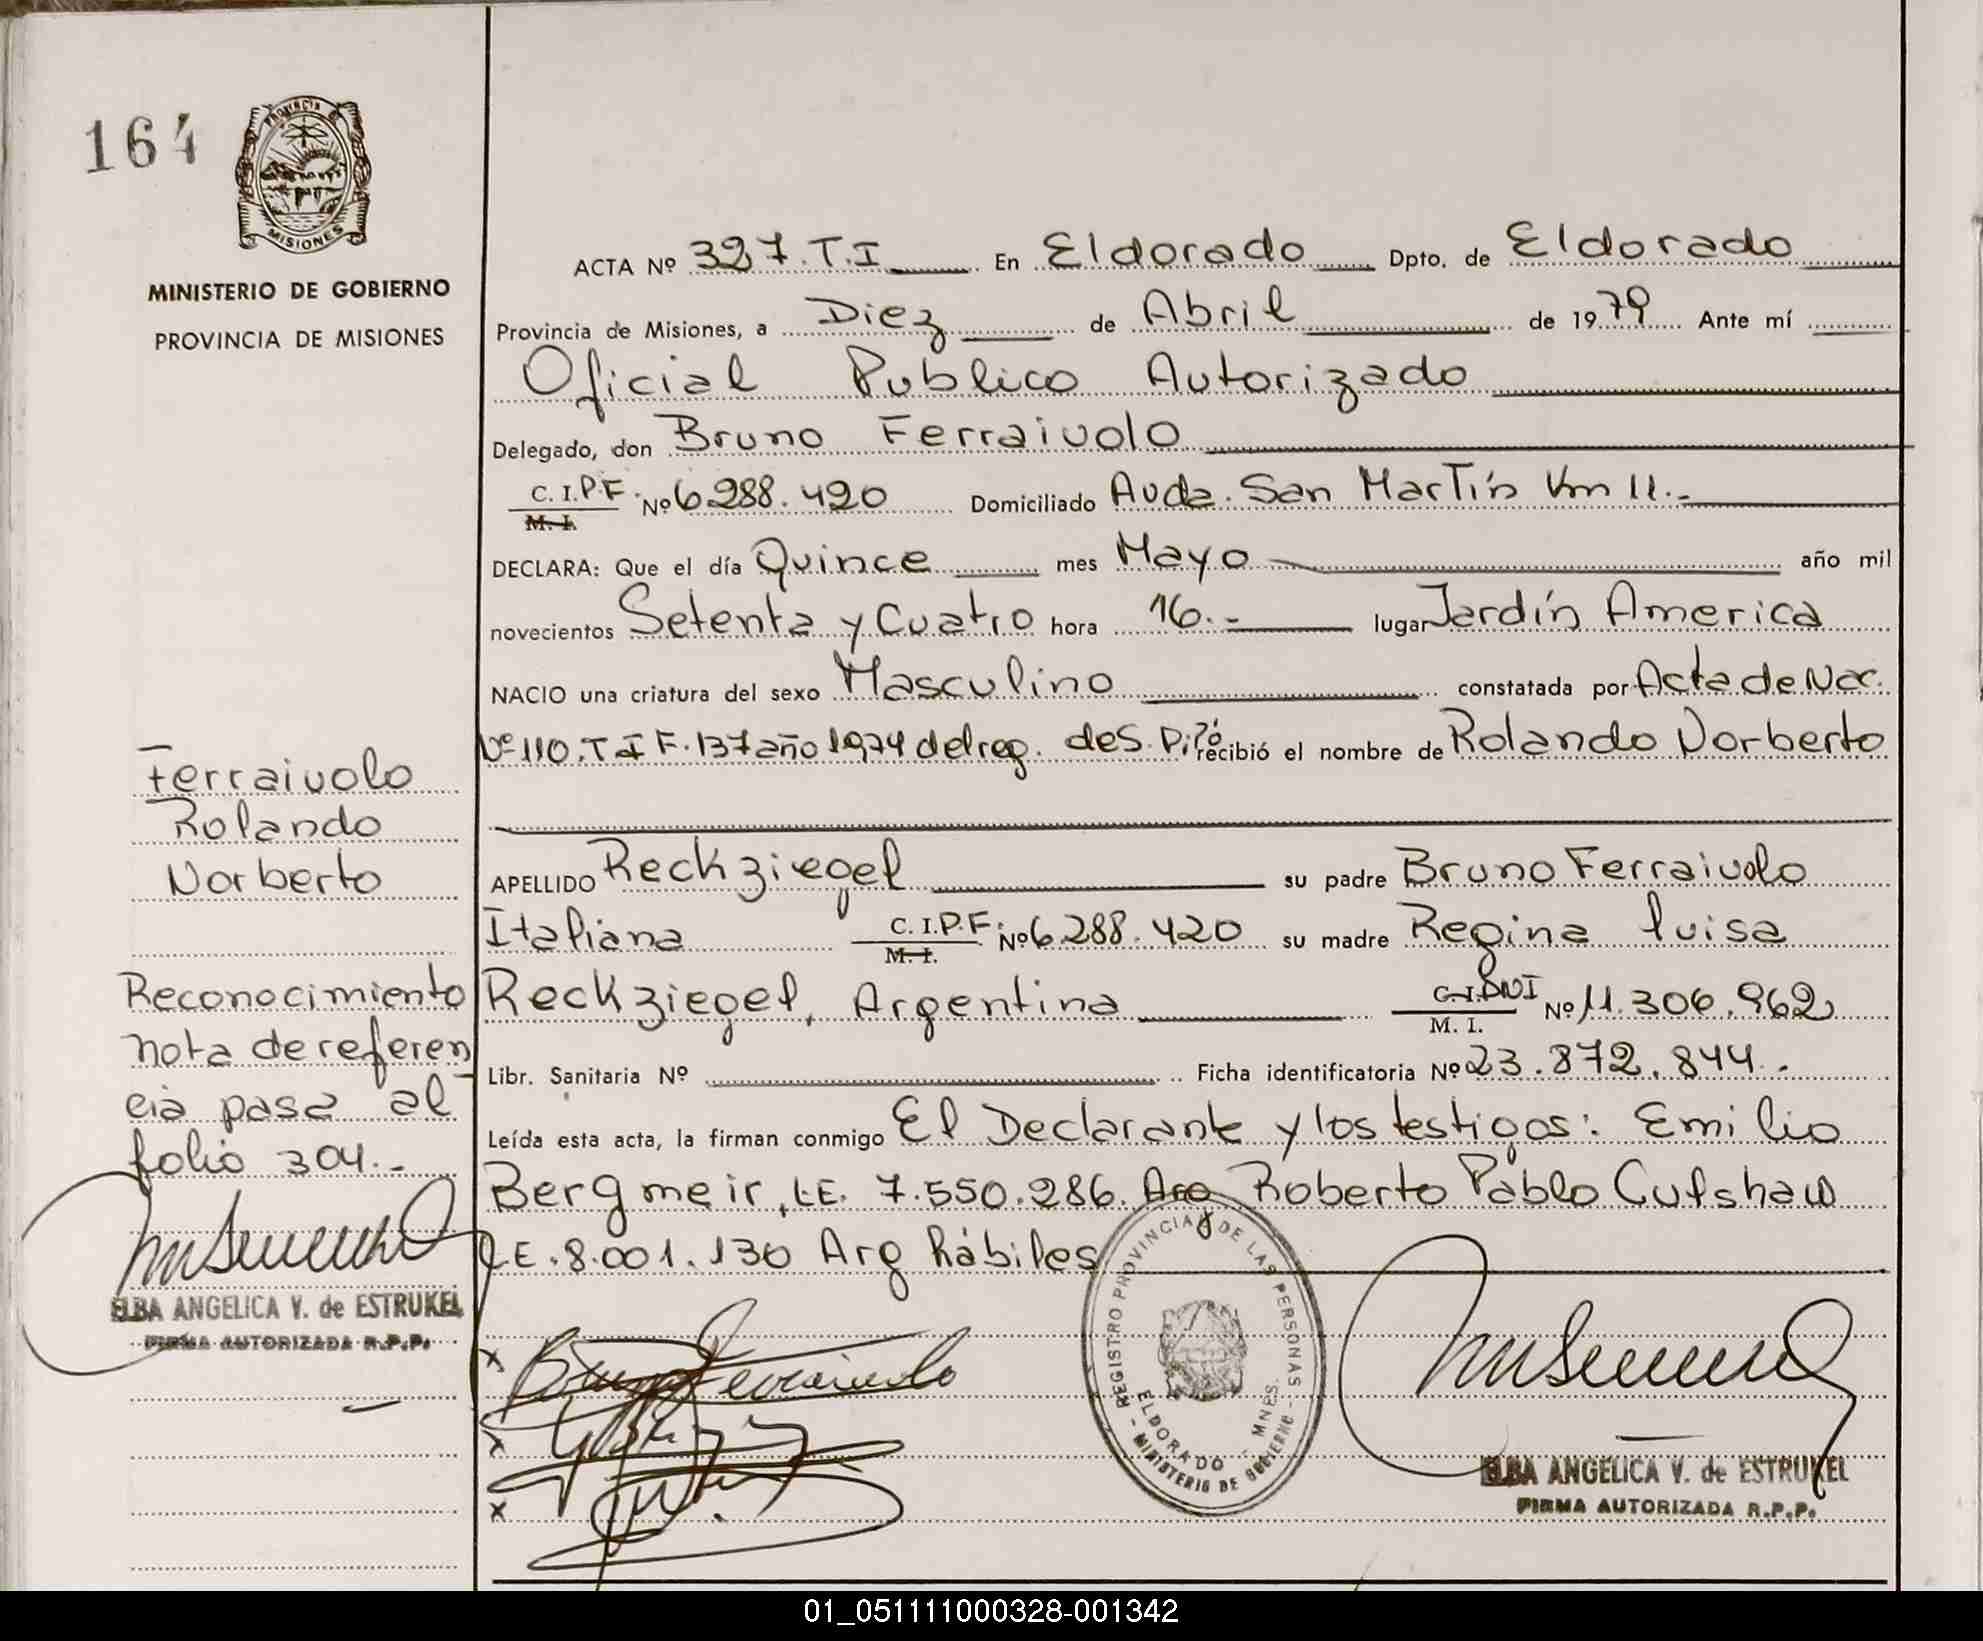 164
PROVINCIA
MISIONES
MINISTERIO DE GOBIERNO
PROVINCIA DE MISIONES
ACTA Nº 327.T.I En Eldorado Dpto. de Eldorado
Provincia de Misiones, a Diez de Abril de 1979 Ante mí
Oficial Publico Autorizado
Delegado, don Bruno Ferraiuolo
C. I.P.F. Nº 6.288.420 Domiciliado Avda. San Martín Km 11.-
M. I.
DECLARA: Que el día Quince mes Mayo año mil
novecientos Setenta y Cuatro hora 16.- lugar Jardín America
NACIO una criatura del sexo Masculino constatada por Acta de Nac.
Nº 110.T I F.137 año 1974 del reg. de S. Pipó recibió el nombre de Rolando Norberto
APELLIDO Reckziegel su padre Bruno Ferraiuolo
Italiana C. I.P.F. Nº 6.288.420 su madre Regina Luisa
M. I.
Reckziegel, Argentina C.I. DNI Nº 11.306.962
M. I.
Libr. Sanitaria Nº Ficha identificatoria Nº 23.872.844.-
Leída esta acta, la firman conmigo El Declarante y los testigos: Emilio
Bergmeir, L.E. 7.550.286. Arg Roberto Pablo Cufshaw
L.E. 8.001.130 Arg hábiles
Ferraiuolo
Rolando
Norberto
Reconocimiento
nota de referen
cia pasa al
folio 304.-
ELBA ANGELICA V. de ESTRUKEL
FIRMA AUTORIZADA R.P.P.
x Bruno Ferraiuolo
x
x
REGISTRO PROVINCIAL DE LAS PERSONAS
ELDORADO - MNES.
- MINISTERIO DE GOBIERNO -
ELBA ANGELICA V. de ESTRUKEL
FIRMA AUTORIZADA R.P.P.
01_051111000328-001342